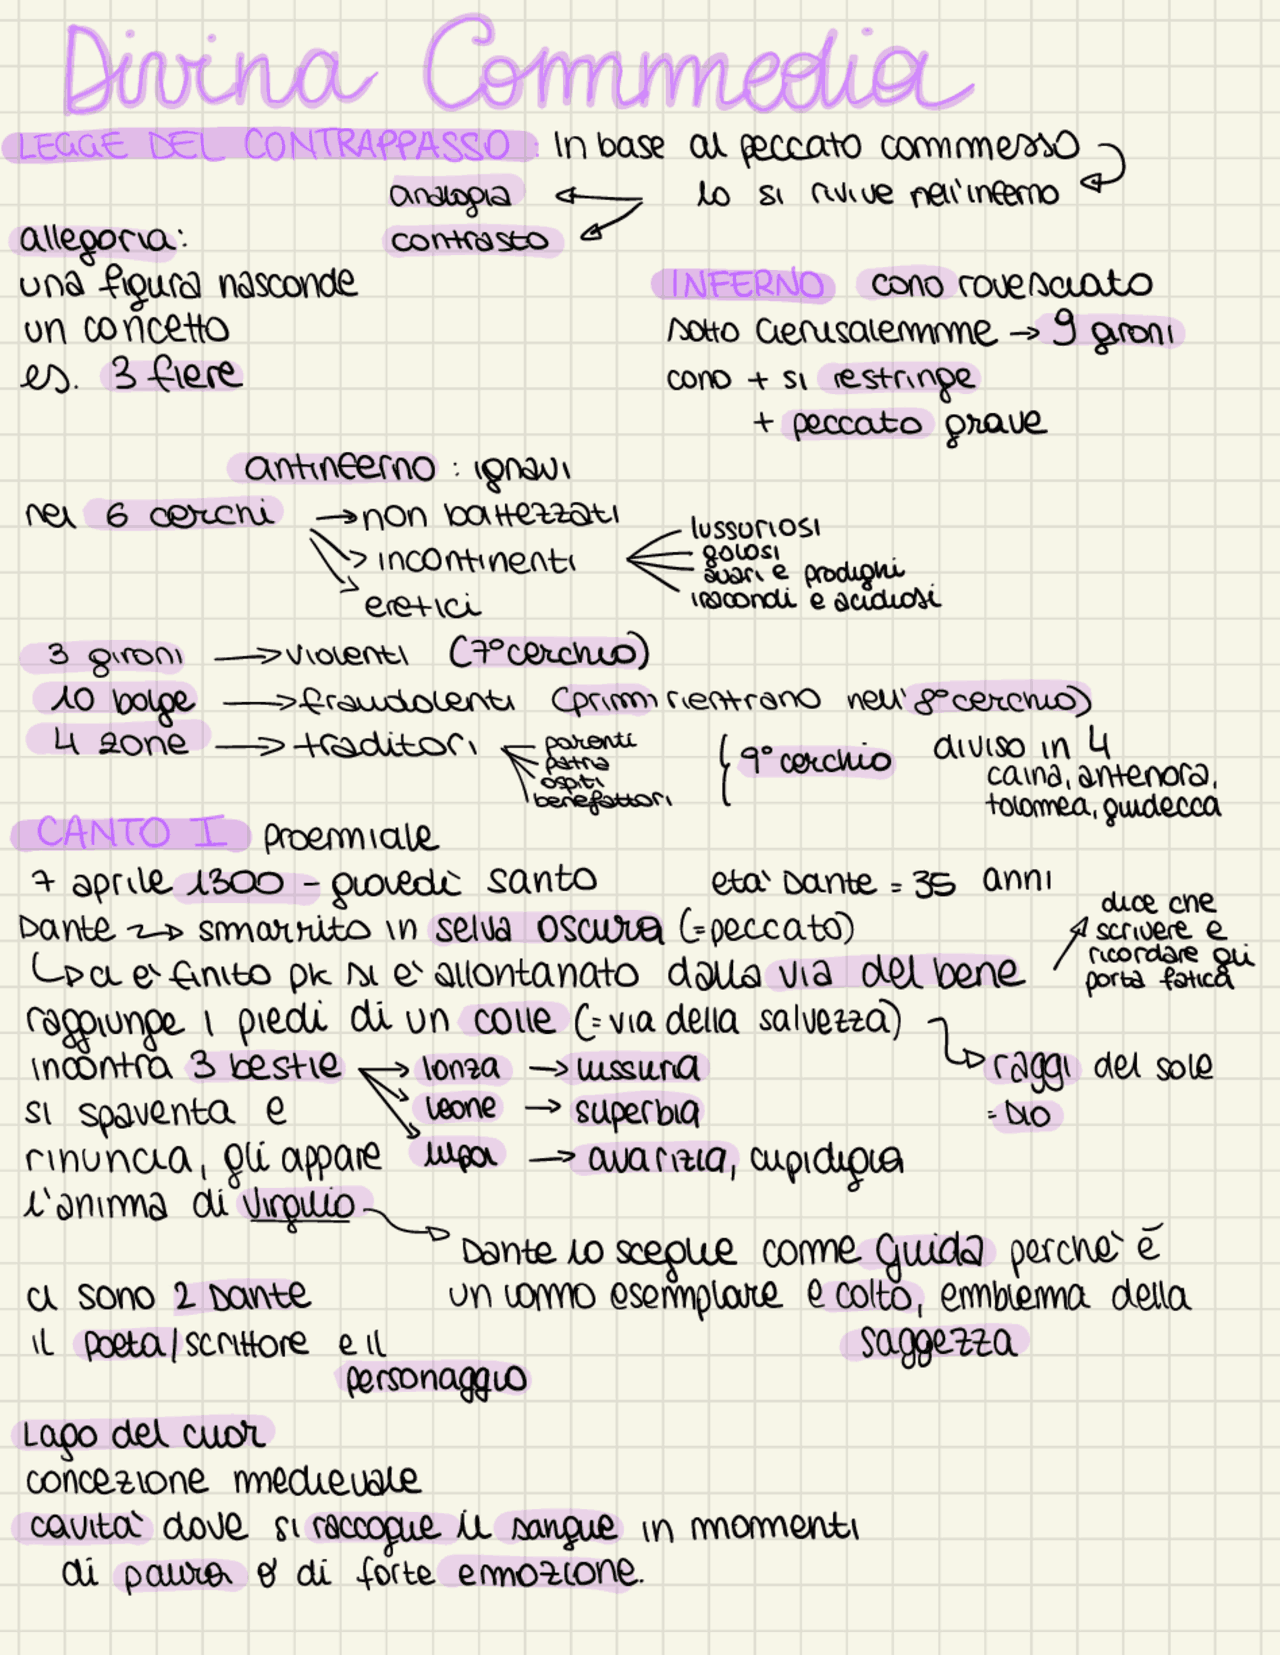 Divina Commedia
LEGGE DEL CONTRAPPASSO: In base al peccato commesso
lo si rivive nell'inferno
analogia
contrasto
allegoria:
una figura nasconde
un concetto
es. 3 fiere
INFERNO cono rovesciato
sotto Gerusalemme → 9 gironi
cono + si restringe
+ peccato grave
antinferno: ignavi
nei 6 cerchi → non battezzati
→ incontinenti
→ eretici
lussuriosi
golosi
avari e prodighi
iracondi e accidiosi
3 gironi → violenti (7° cerchio)
10 bolge → fraudolenti (primi rientrano nell'8° cerchio)
4 zone → traditori
parenti
patria
ospiti
benefattori
9° cerchio
diviso in 4
caina, antenora,
tolomea, giudecca
CANTO I proemiale
7 aprile 1300 - giovedì santo età Dante = 35 anni
Dante → smarrito in selva oscura (=peccato)
↳ ci è finito pk si è allontanato dalla via del bene
dice che
scrivere e
ricordare gli
porta fatica
raggiunge i piedi di un colle (=via della salvezza)
raggi del sole
= Dio
incontra 3 bestie → lonza → lussuria
→ leone → superbia
→ lupa → avarizia, cupidigia
si spaventa e
rinuncia, gli appare
l'anima di Virgilio
Dante lo sceglie come guida perchè è
un uomo esemplare e colto, emblema della
saggezza
ci sono 2 Dante
il poeta/scrittore e il
personaggio
Lago del cuor
concezione medievale
cavità dove si raccoglie il sangue in momenti
di paura o di forte emozione.